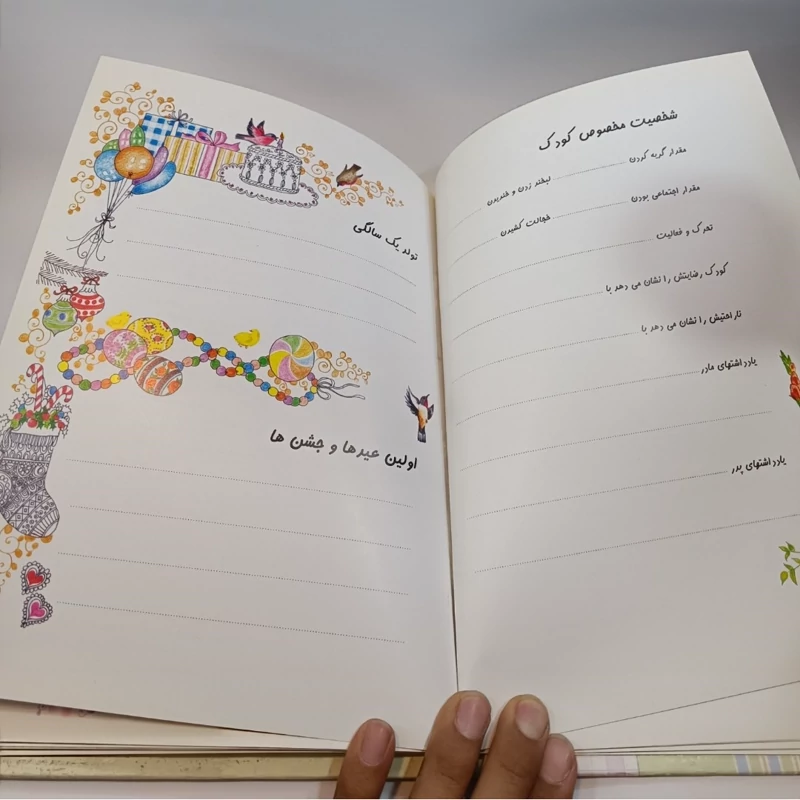 شخصیت مخصوص کودک
مقدار گریه کردن ........ لبخند زدن و خندیدن ........
مقدار اجتماعی بودن ........ خجالت کشیدن ........
تحرک و فعالیت ........
کودک رضایتش را نشان می دهد با ........
ناراحتیش را نشان می دهد با ........
یادداشتهای مادر ........
یادداشتهای پدر ........
تولد یک سالگی
اولین عیدها و جشن ها